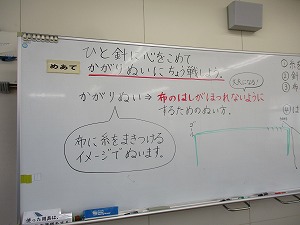 めあて
ひと針に心をこめて
かがりぬいにちょう戦しよう。
丈夫になる!
かがりぬい⇒布のはしがほつれないように
するためのぬい方。
布に糸をまきつける
イメージでぬいます。
①糸を
②
③布